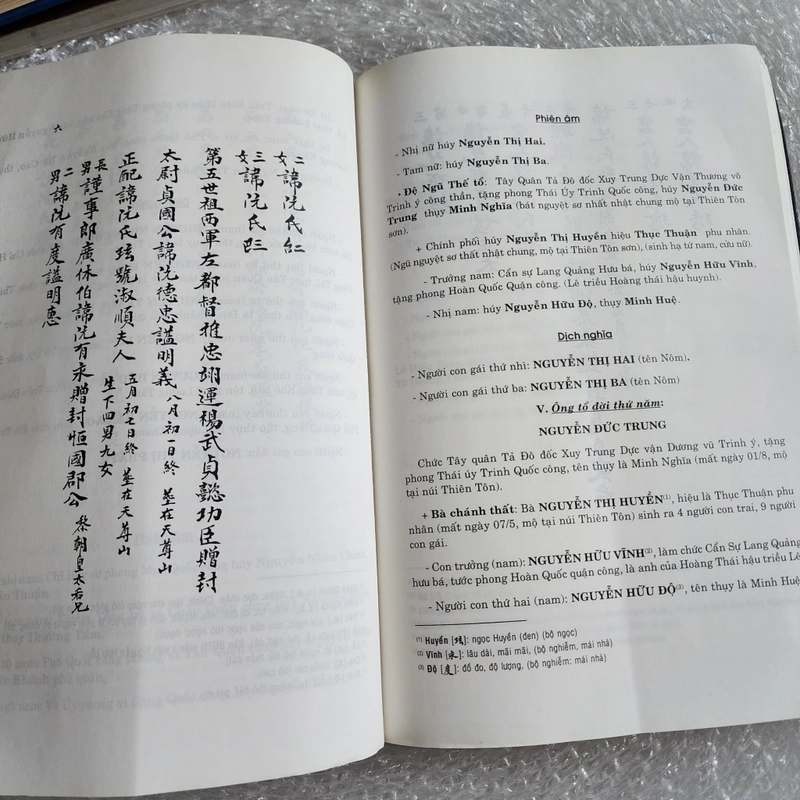 六
二女諱阮氏
三女諱阮氏𠀧
第五世祖西軍左都督推忠翊運楊武貞懿功臣贈封
太尉貞國公諱阮德忠謚明義 八月初一日終 墓在天尊山
正配諱阮氏玹號淑順夫人 五月初七日終 墓在天尊山
生下四男九女
長男謹事郎廣休伯諱阮有永贈封恒國郡公 黎朝皇太后兄
二男諱阮有度謚明惠
Phiên âm
- Nhị nữ húy Nguyễn Thị Hai.
- Tam nữ: húy Nguyễn Thị Ba.
. Đệ Ngũ Thế tổ: Tây Quân Tả Đô đốc Xuy Trung Dực Vận Thương võ
Trinh ý công thần, tặng phong Thái Ủy Trinh Quốc công, húy Nguyễn Đức
Trung thụy Minh Nghĩa (bát nguyệt sơ nhất nhật chung mộ tại Thiên Tôn
sơn).
+ Chính phối húy Nguyễn Thị Huyền hiệu Thục Thuận phu nhân.
(Ngũ nguyệt sơ thất nhật chung, mộ tại Thiên Tôn sơn), (sinh hạ tứ nam, cửu nữ).
- Trưởng nam: Cẩn sự Lang Quảng Hưu bá, húy Nguyễn Hữu Vĩnh,
tặng phong Hoàn Quốc Quận công. (Lê triều Hoàng thái hậu huynh).
- Nhị nam: húy Nguyễn Hữu Độ, thụy Minh Huệ.
Dịch nghĩa
- Người con gái thứ nhì: NGUYỄN THỊ HAI (tên Nôm).
- Người con gái thứ ba: NGUYỄN THỊ BA (tên Nôm)
V. Ông tổ đời thứ năm:
NGUYỄN ĐỨC TRUNG
Chức Tây quân Tả Đô đốc Xuy Trung Dực vận Dương vũ Trinh ý, tặng
phong Thái úy Trinh Quốc công, tên thụy là Minh Nghĩa (mất ngày 01/8, mộ
tại núi Thiên Tôn).
+ Bà chánh thất: Bà NGUYỄN THỊ HUYỀN(1), hiệu là Thục Thuận phu
nhân (mất ngày 07/5, mộ tại núi Thiên Tôn) sinh ra 4 người con trai, 9 người
con gái.
- Con trưởng (nam): NGUYỄN HỮU VĨNH(2), làm chức Cẩn Sự Lang Quảng
hưu bá, tước phong Hoàn Quốc quận công, là anh của Hoàng Thái hậu triều Lê
- Người con thứ hai (nam): NGUYỄN HỮU ĐỘ(3), tên thụy là Minh Huệ
(1) Huyền [玹]: ngọc Huyền (đen) (bộ ngọc)
(2) Vĩnh [永]: lâu dài, mãi mãi, (bộ nghiễm, mái nhà)
(3) Độ [度]: đồ đo, độ lượng, (bộ nghiễm: mái nhà)